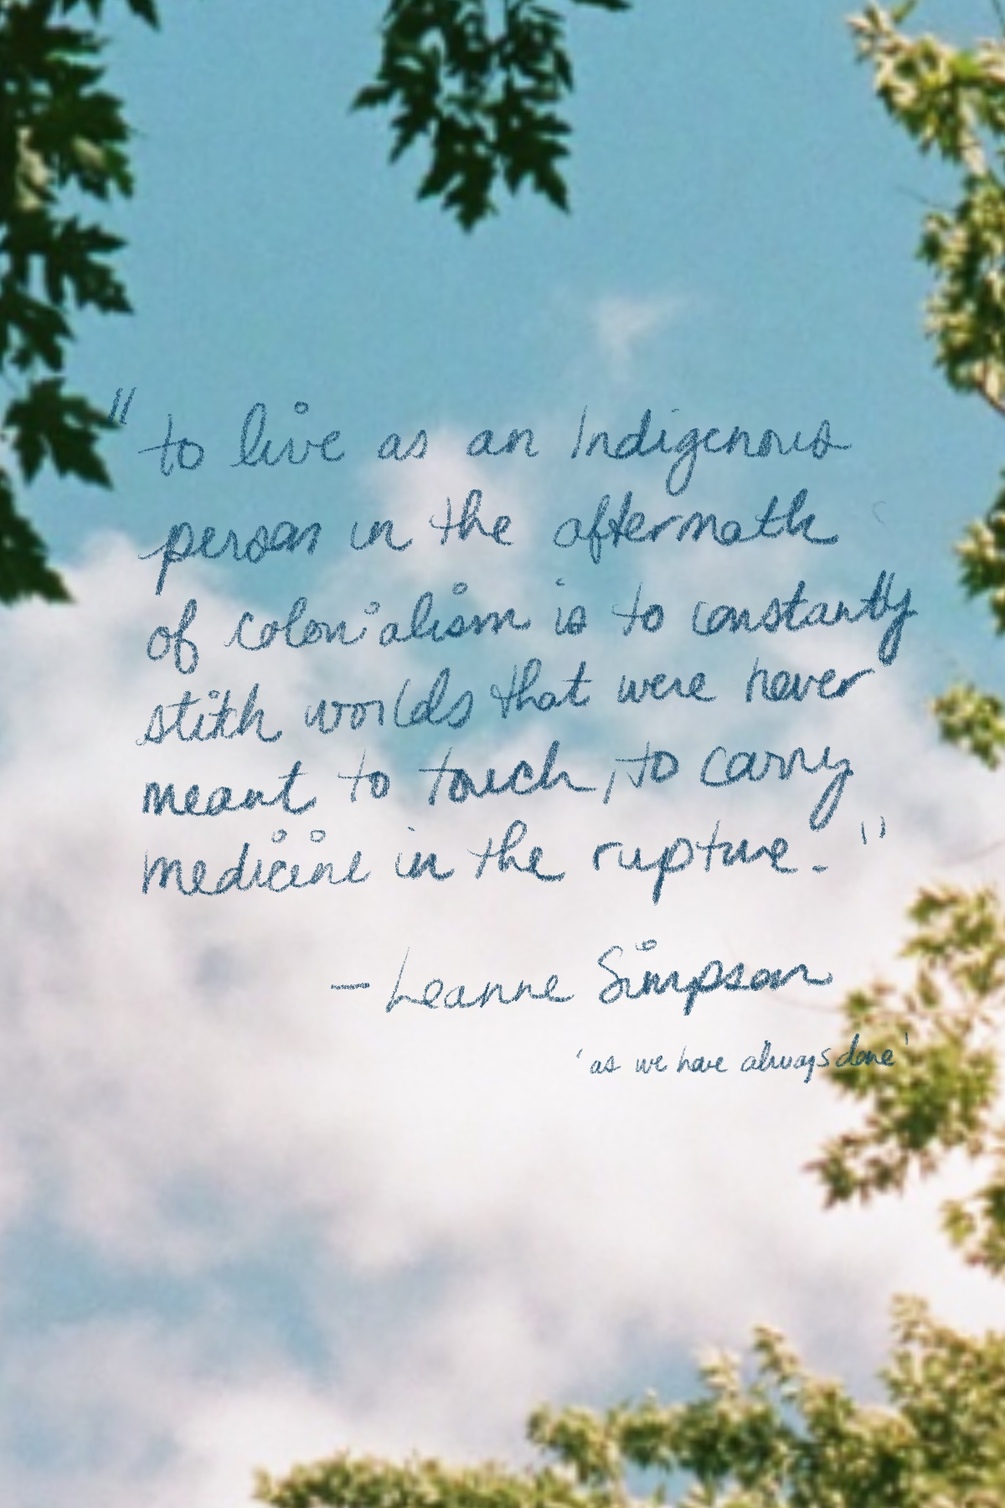 "to live as an Indigenous
person in the aftermath
of colonialism is to constantly
stitch worlds that were never
meant to touch, to carry
medicine in the rupture."
- Leanne Simpson
'as we have always done'